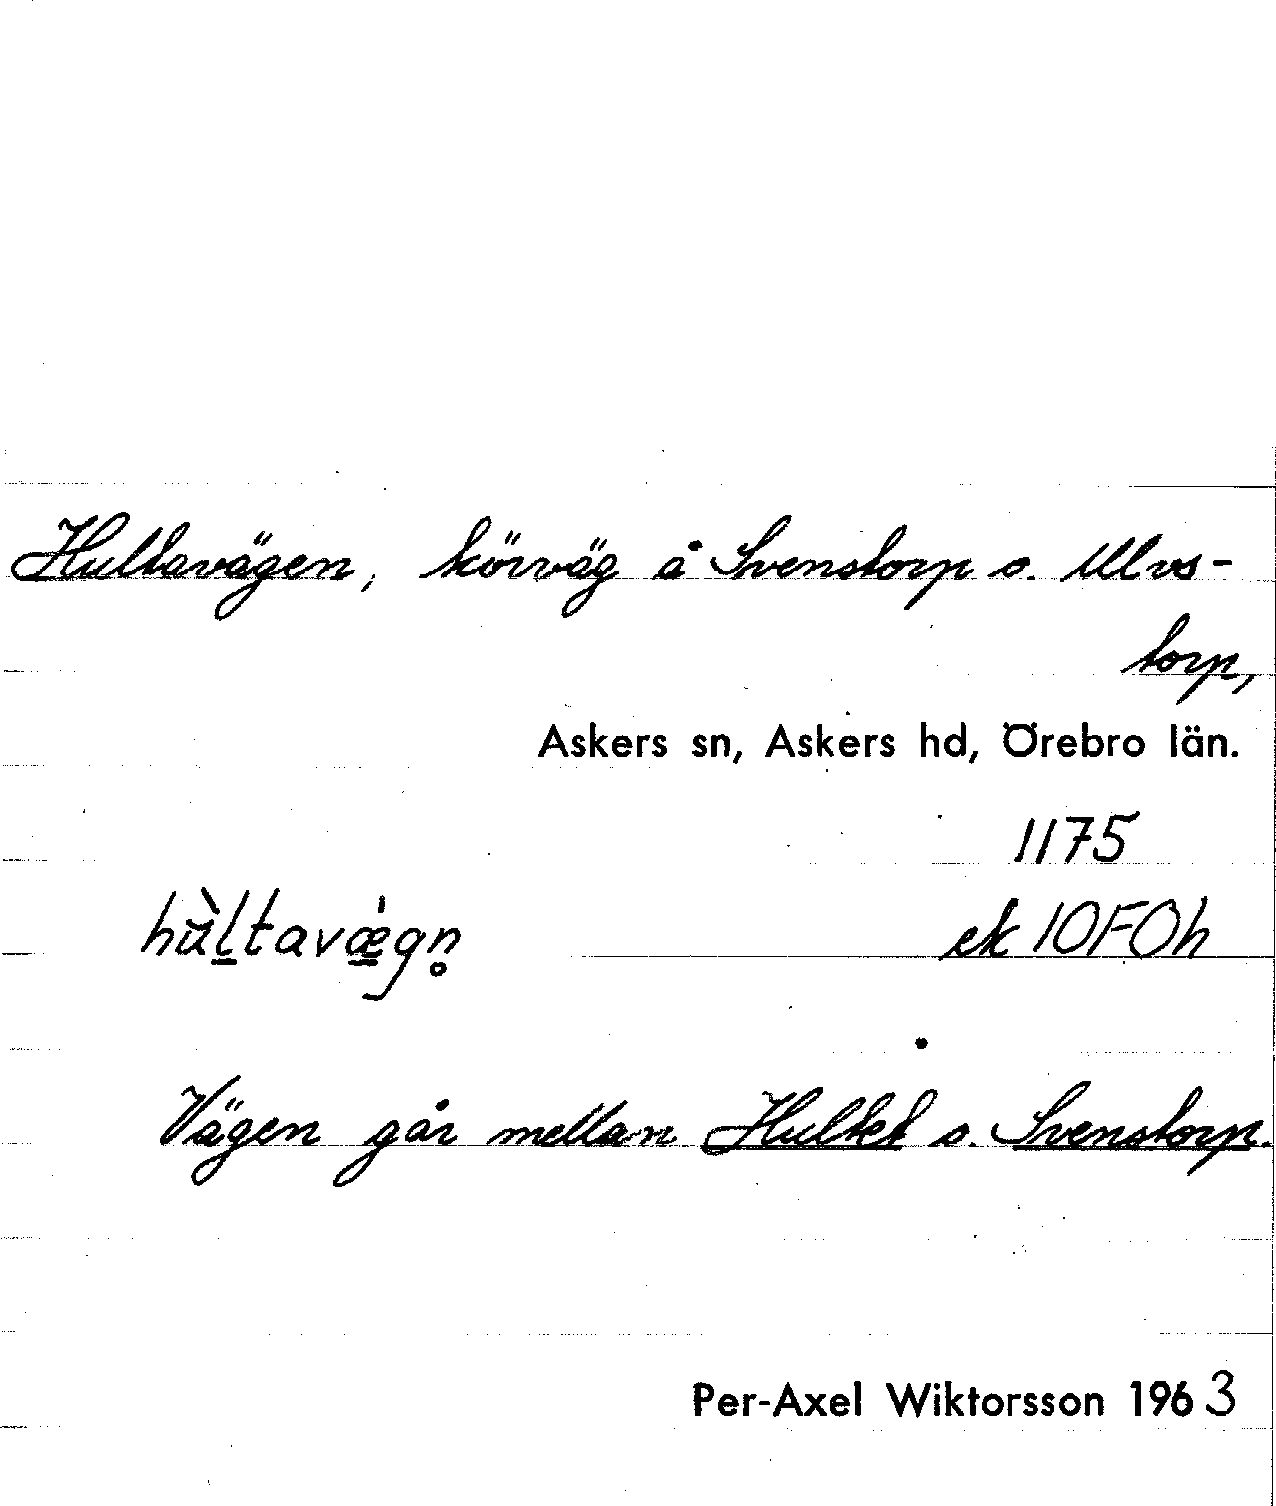 Hultavägen, körväg å Svenstorp o. Ulvs-
torp,
Askers sn, Askers hd, Örebro län.
1175
hùltavǽgn̥
ek 10F0h
Vägen går mellan Hultet o. Svenstorp.
Per-Axel Wiktorsson 1963